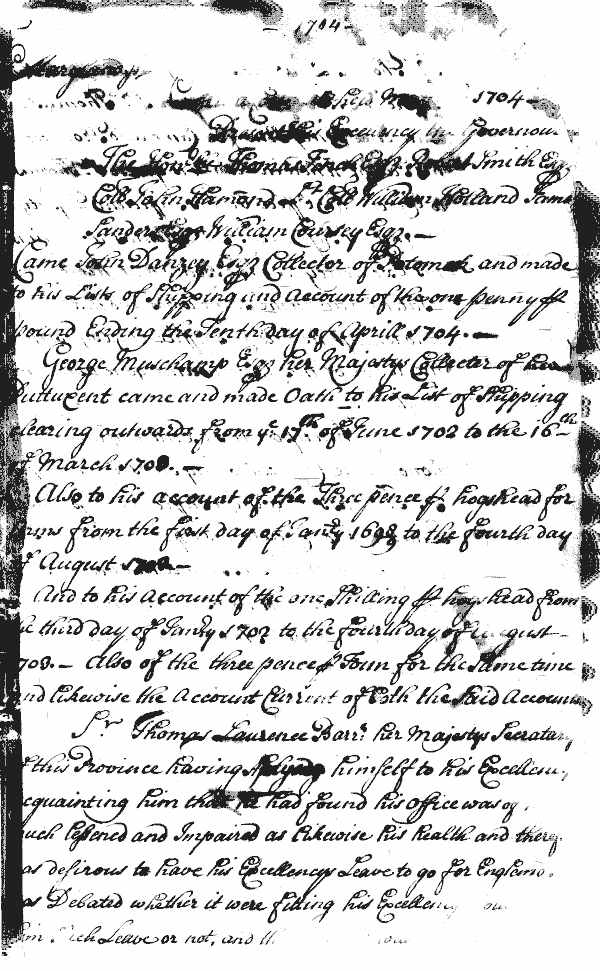 1704
Maryland ss
1704
Present his Excellency the Governour
The Honble Thomas Tench Esqr Robert Smith Esqr
Coll John Hamond Lt Coll William Holland James
Sanders Esqr William Coursey Esqr.—
Came John Danzey Esqr Collector of Potomek and made
to his Lists of Shipping and Account of the one penny ꝑ
pound Ending the Tenth day of Aprill 1704.—
George Muschamp Esqr her Majestys Collector of
Puttuxent came and made Oath to his List of Shipping
clearing outwards from ye 17th of June 1702 to the 16th
of March 1703.—
Also to his account of the Three pence ꝑ hogshead for
from the first day of Janry 1698 to the fourth day
of August
And to his Account of the one Shilling ꝑ hogshead from
the third day of Janry 1702 to the fourth day of August
1703.— Also of the three pence ꝑ Tonn for the same time
and likewise the Account Current of both the said Accounts
Sr Thomas Laurence Barrt her Majestys Secretary
of this Province having himself to his Excellency
acquainting him that he had found his Office was
much lessened and Impaired as likewise his health and
was desirous to have his Excellencys Leave to go for England.
was Debated whether it were fitting his Excellency
him such Leave or not, and